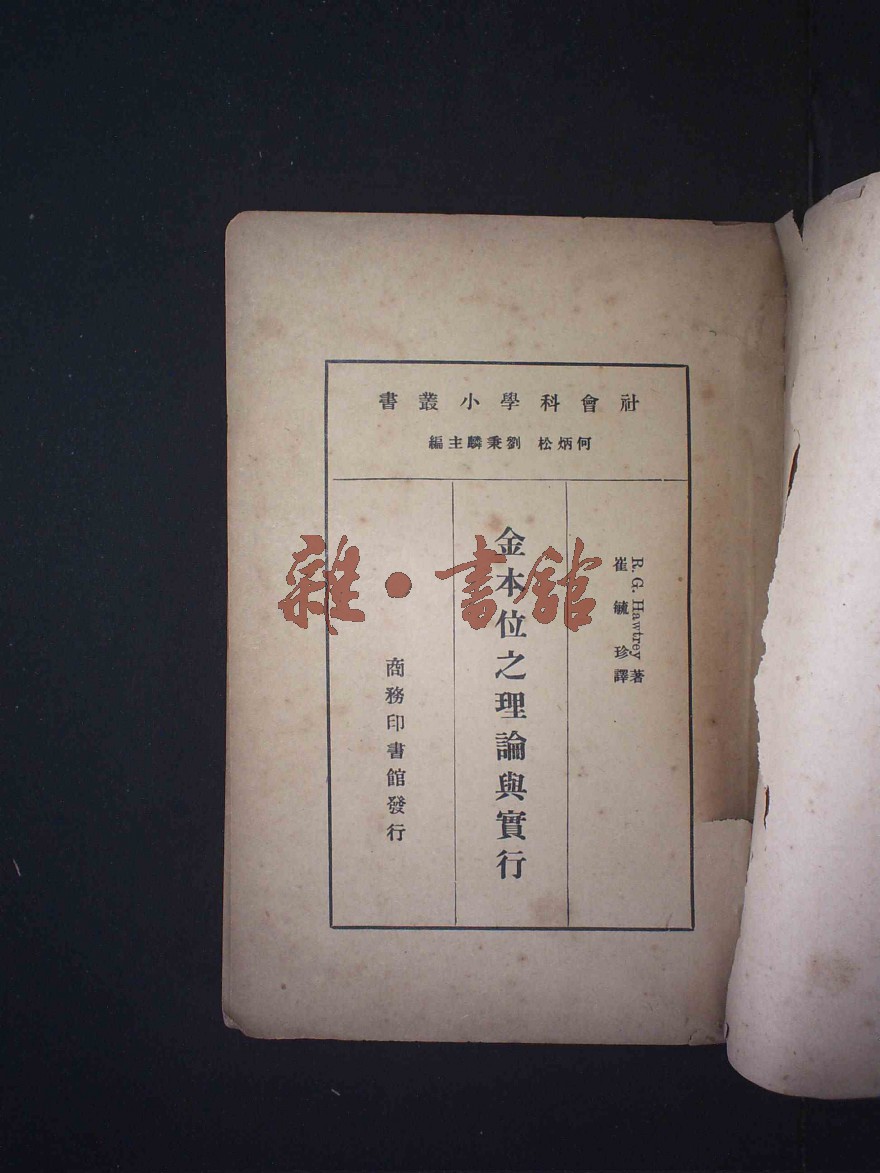 社會科學小叢書
何炳松 劉秉麟主編
R. G. Hawtrey 著
崔毓珍譯
金本位之理論與實行
商務印書館發行
雜·書館